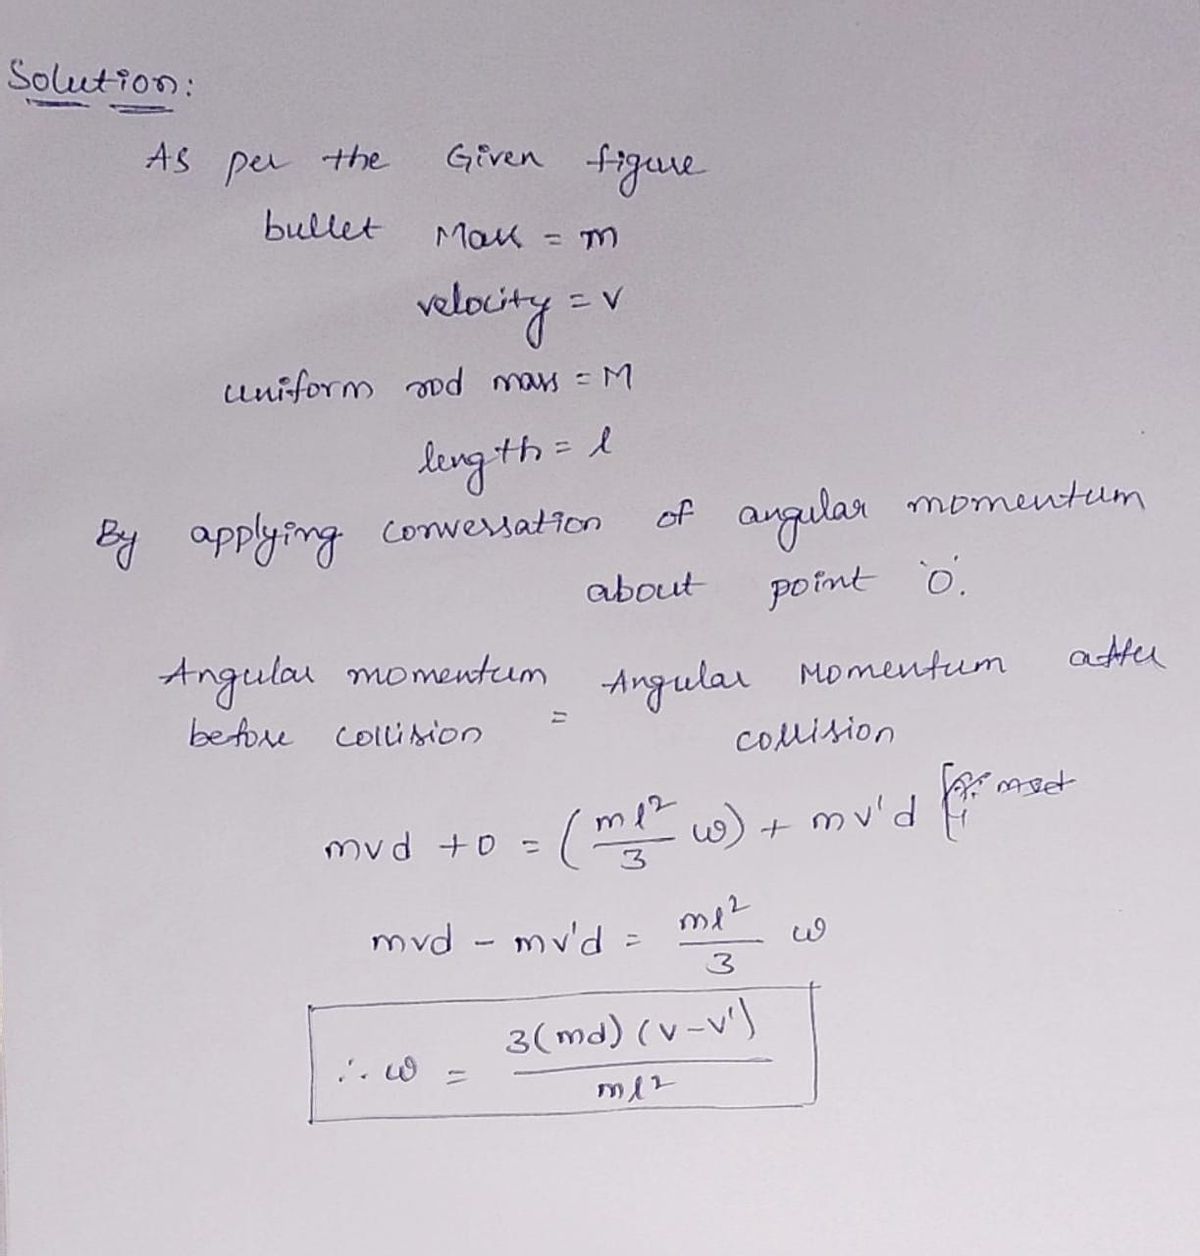 Solution:
As per the Given figure
bullet Mass = m
velocity = v
uniform rod mass = M
length = l
By applying conversation of angular momentum
about point 'O'.
Angular momentum = Angular Momentum after
before collision collision
mvd + 0 = (ml²/3 ω) + mv'd
mvd - mv'd = ml²/3 ω
∴ ω = 3(md)(v-v')/ml²